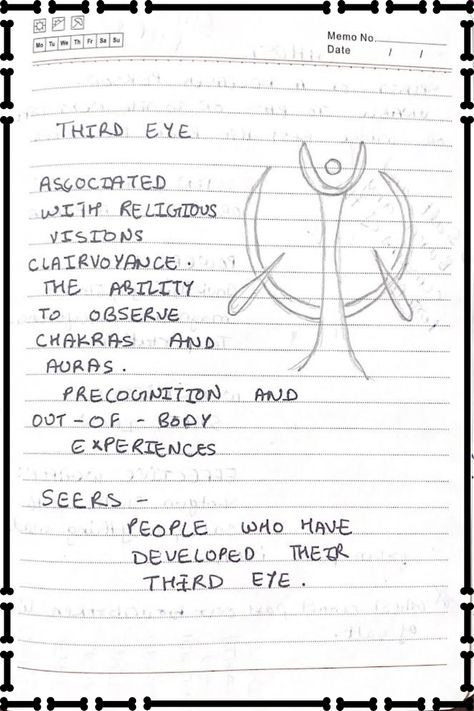 Memo No.
Mo Tu We Th Fr Sa Su
Date / /
THIRD EYE
ASGOCIATED
WITH RELIGIOUS
VISIONS
CLAIRVOYANCE.
THE ABILITY
TO OBSERVE
CHAKRAS AND
AURAS.
PRECOGINITION AND
OUT-OF-BODY
EXPERIENCES
SEERS -
PEOPLE WHO HAVE
DEVELOPED THEIR
THIRD EYE.